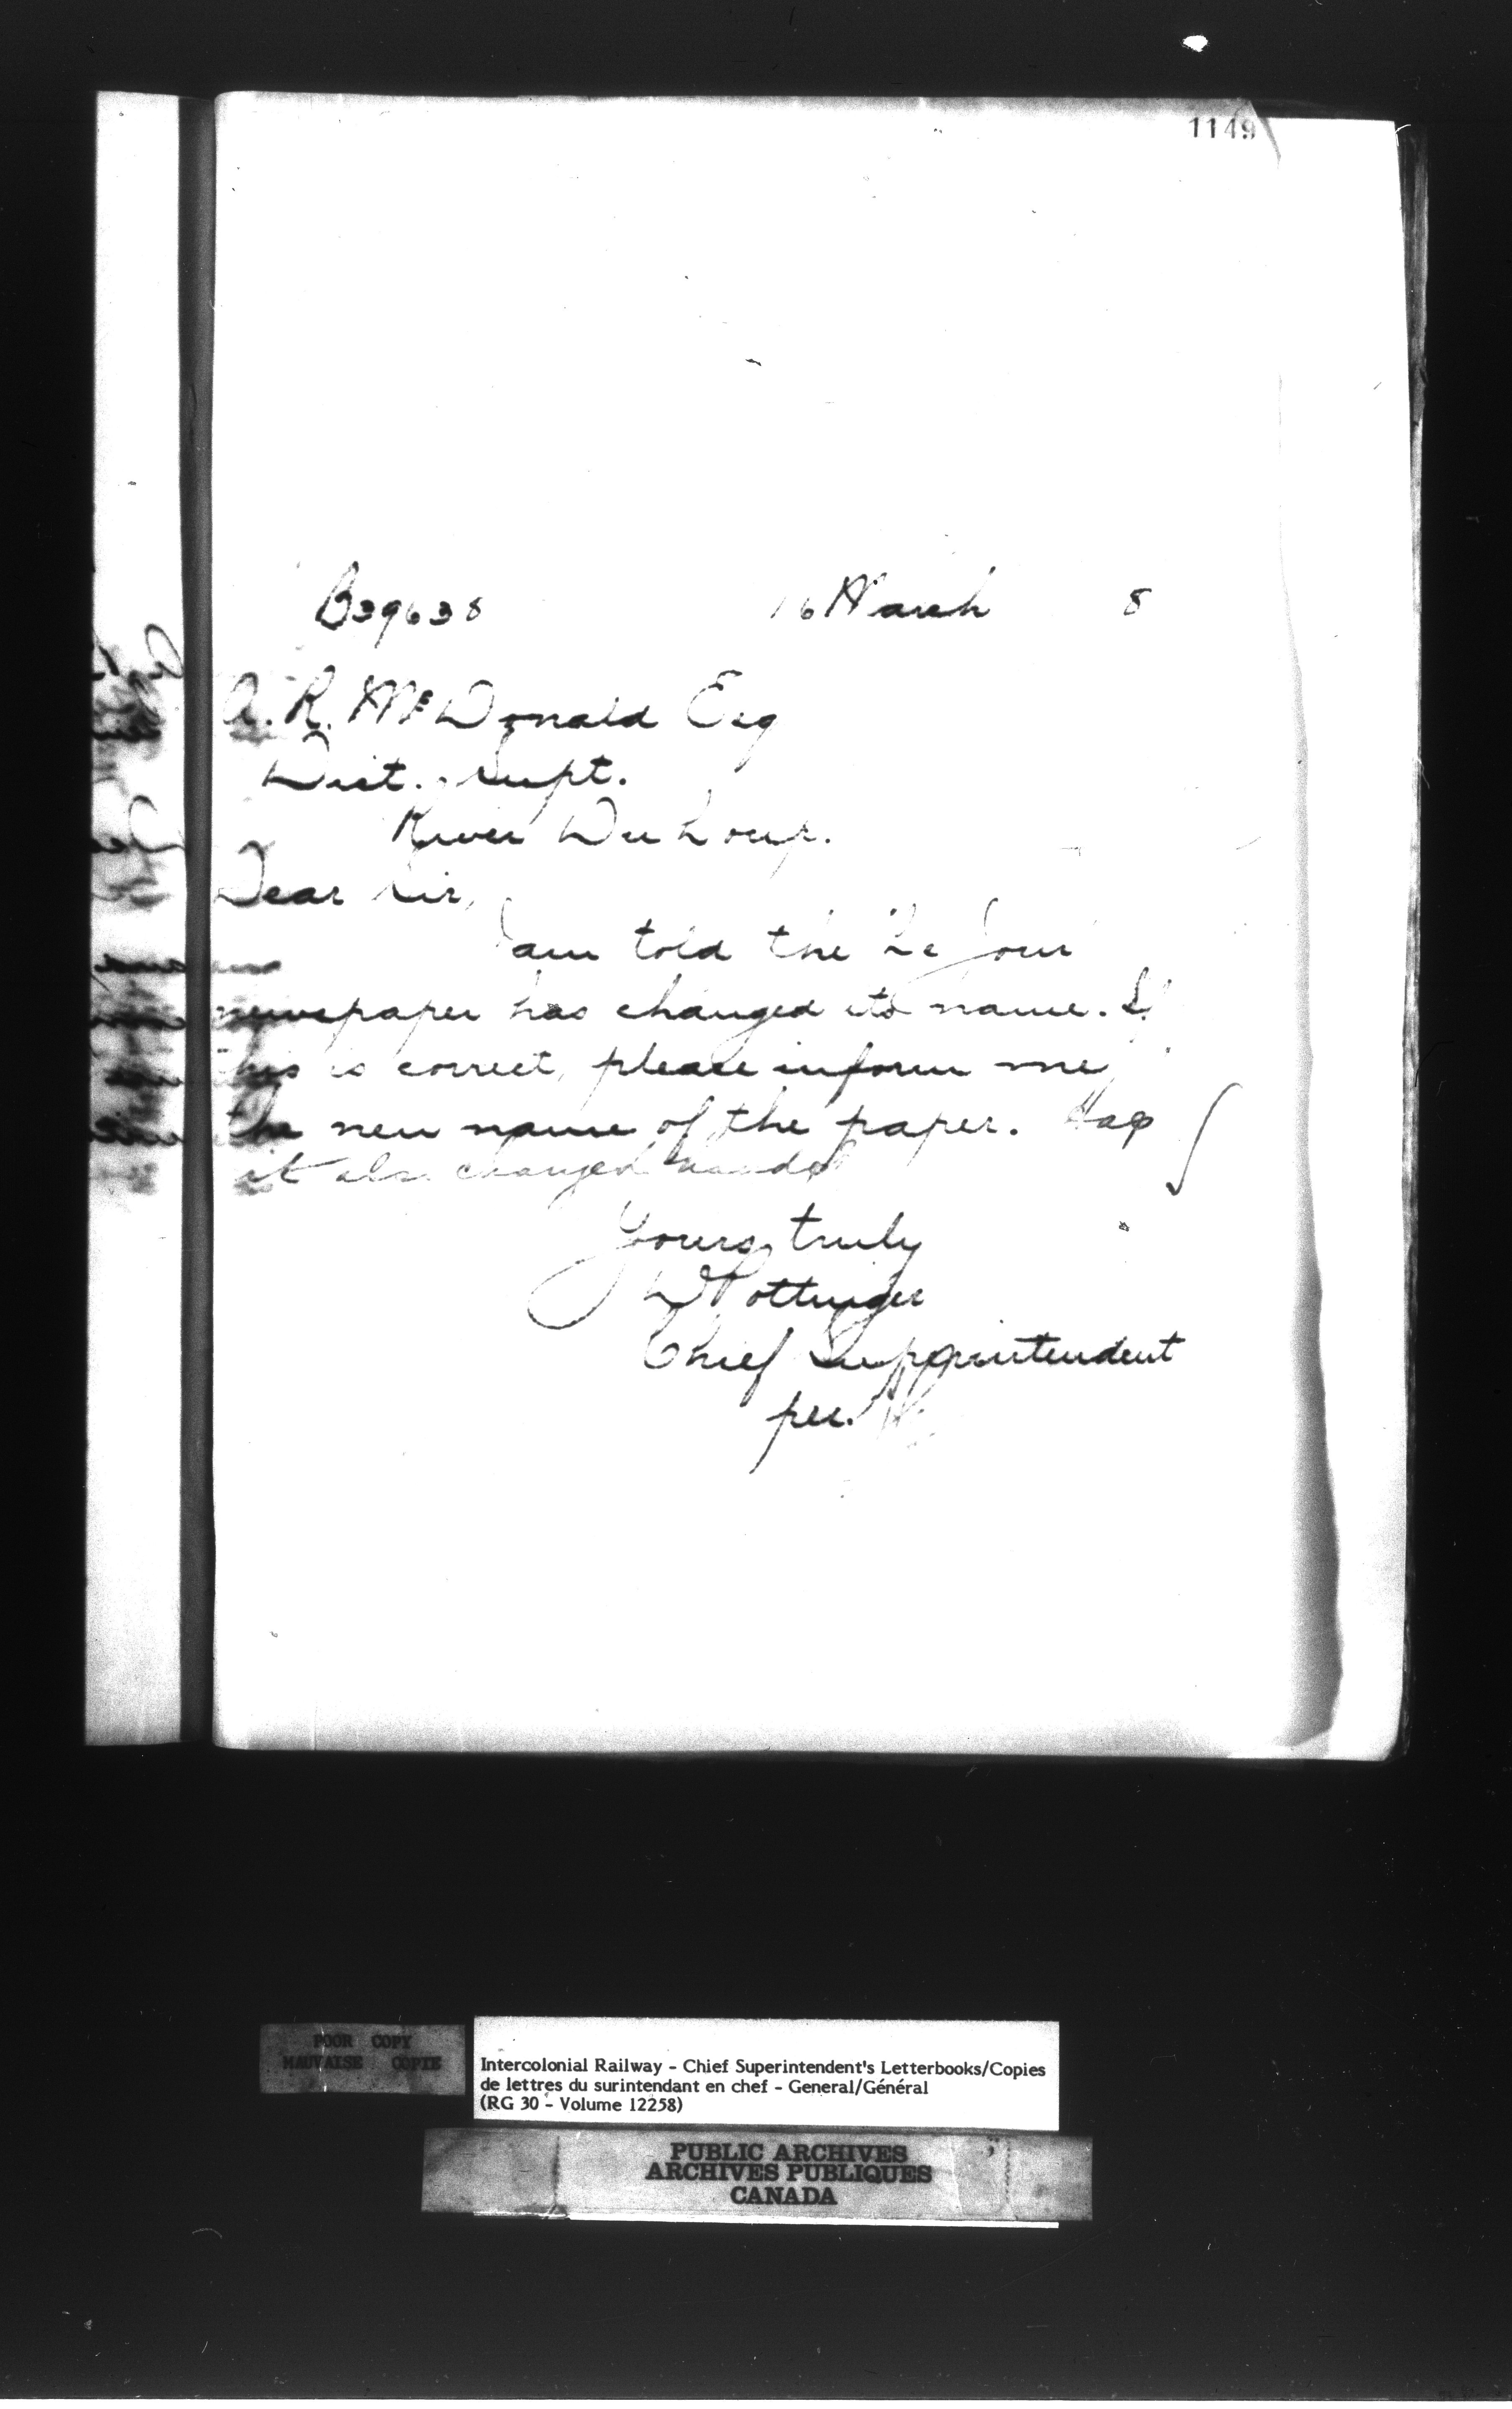 1149
B39638 16 March 8
A. R. McDonald Esq
Dist. Supt.
River Du Loup.
Dear Sir,
I am told the Le Jour
newspaper has changed its name. If
this is correct, please inform me
the new name of the paper. Has
it also changed hands?
Yours truly
D Pottinger
Chief Superintendent
per.
POOR COPY
MAUVAISE COPIE
Intercolonial Railway - Chief Superintendent's Letterbooks/Copies
de lettres du surintendant en chef - General/Général
(RG 30 - Volume 12258)
PUBLIC ARCHIVES
ARCHIVES PUBLIQUES
CANADA